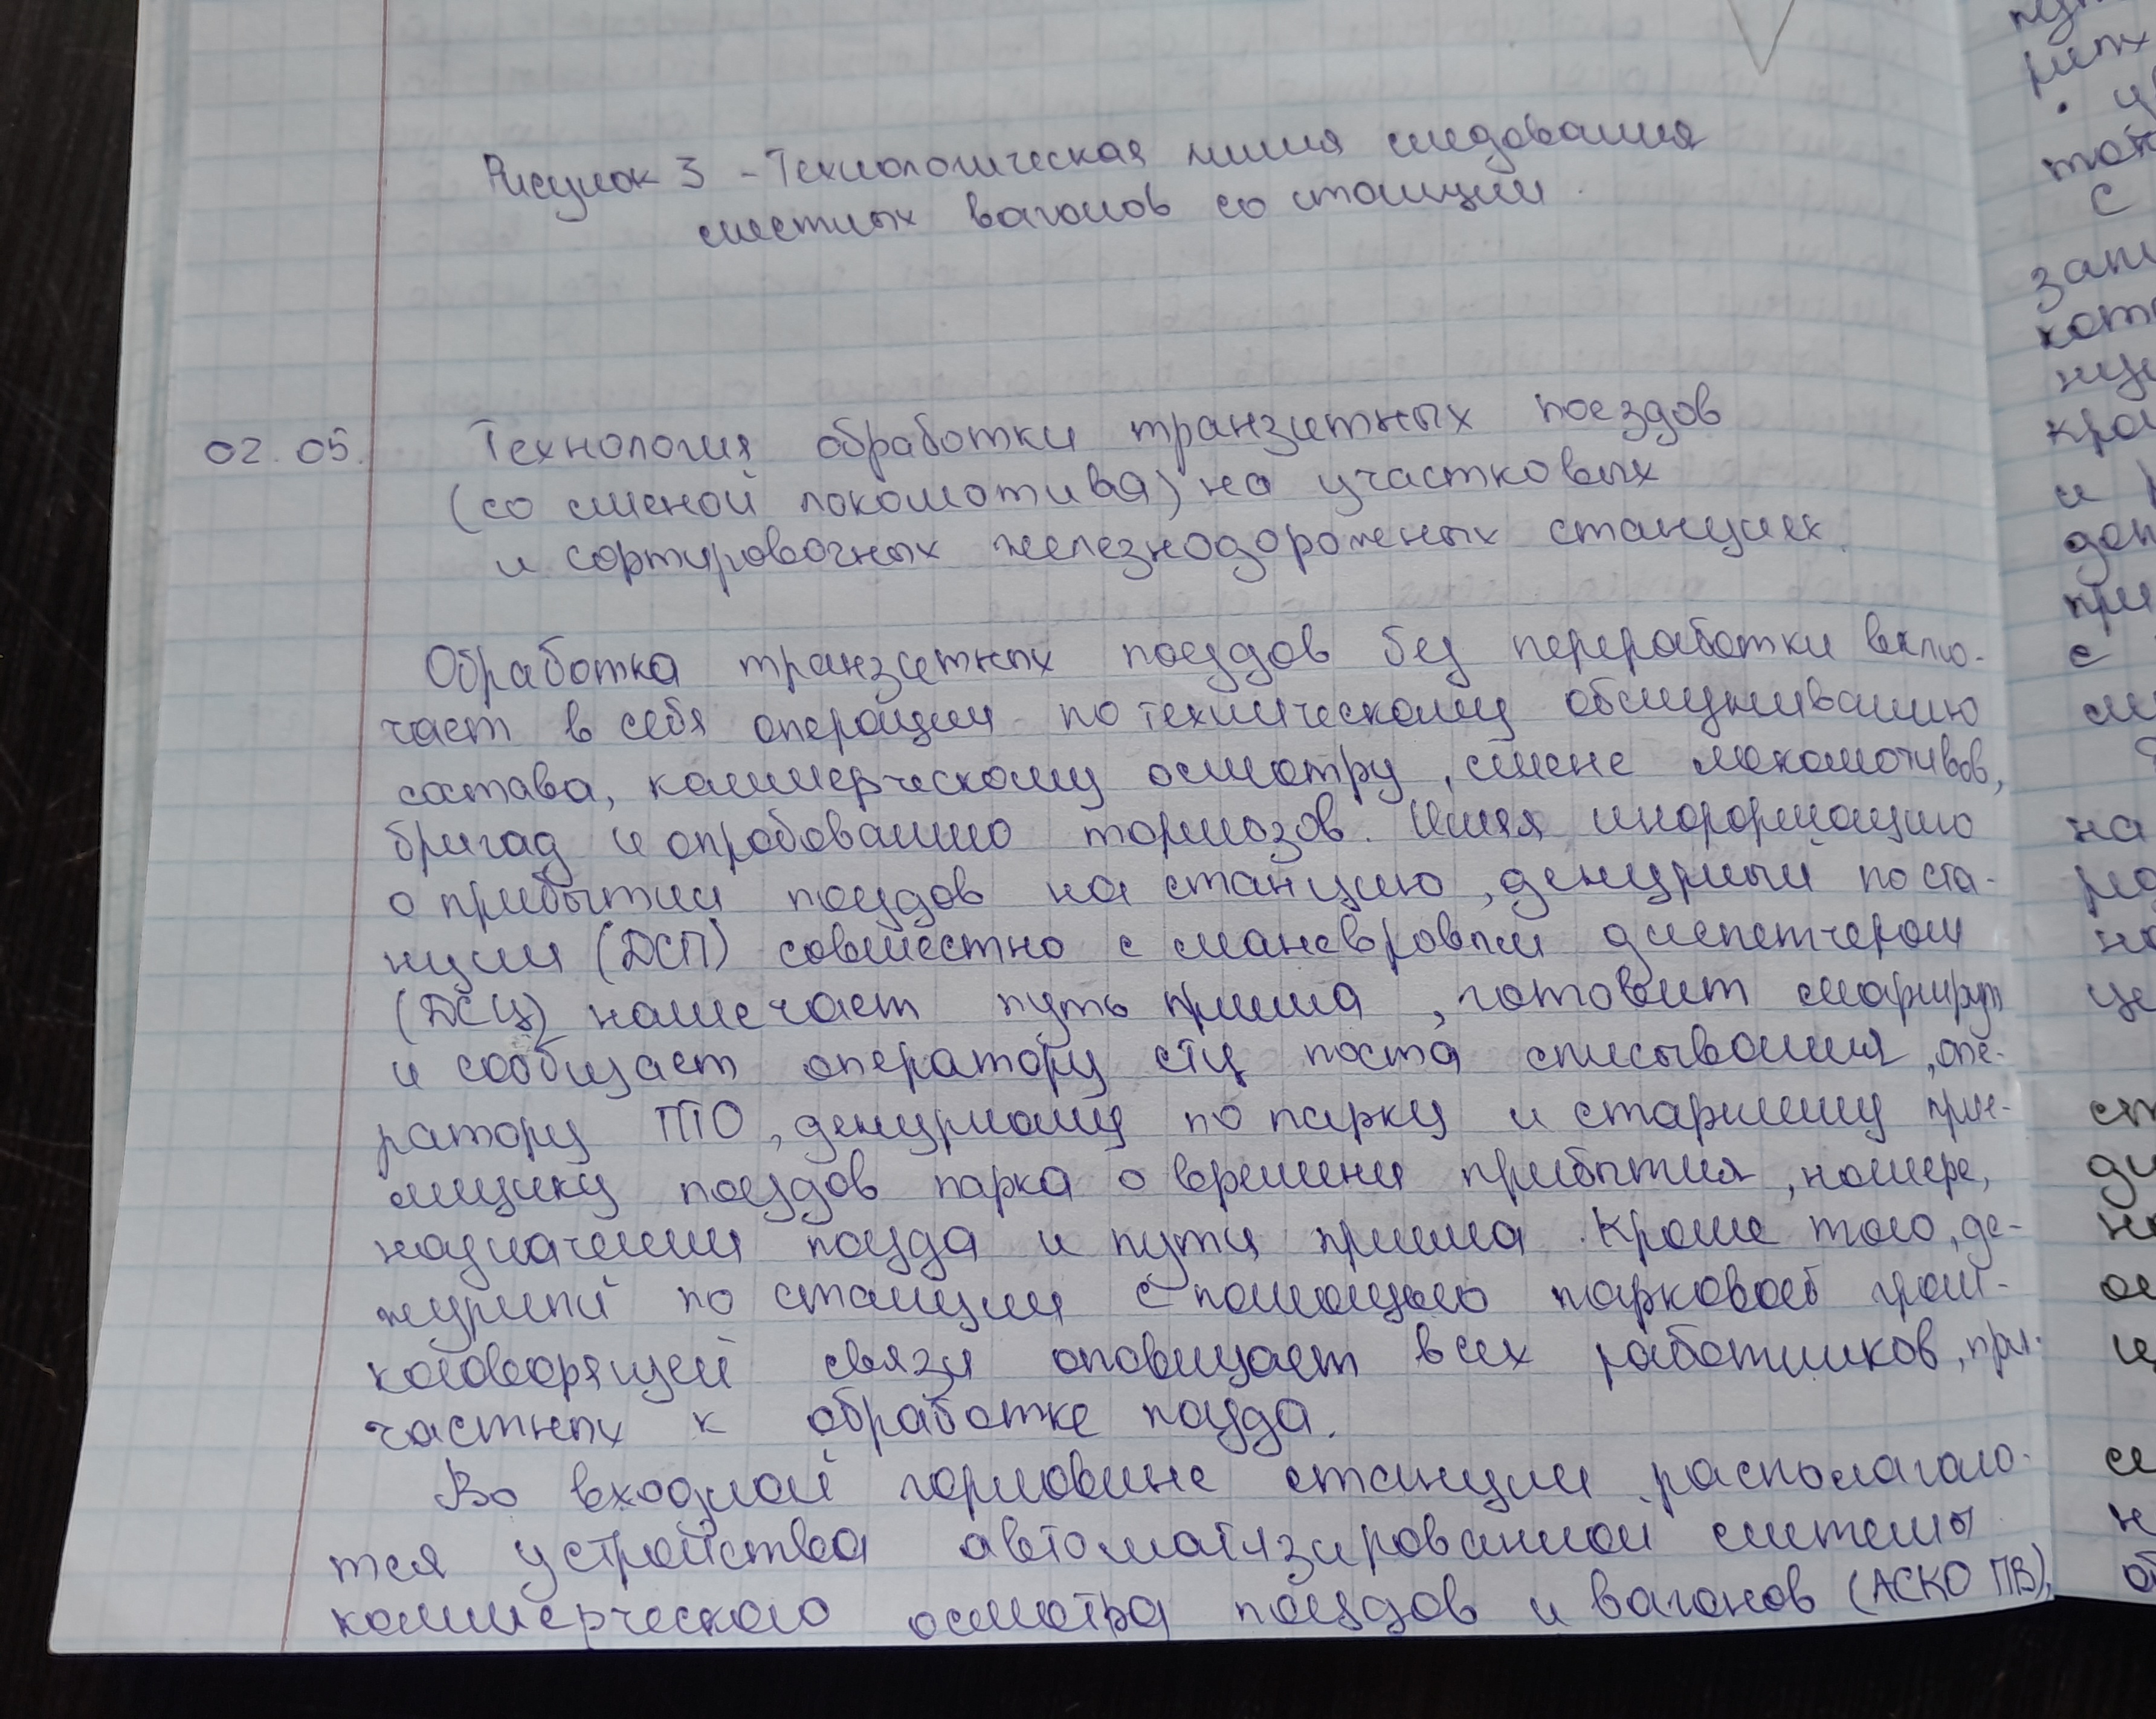 Рисунок 3 - Технологическая линия следования
местных вагонов со станции.
02.05. Технология обработки транзитных поездов
(со сменой локомотива) на участковых
и сортировочных железнодорожных станциях.
Обработка транзитных поездов без переработки вклю-
чает в себя операции по техническому обслуживанию
состава, коммерческому осмотру, смене локомотивов,
бригад и опробованию тормозов. Имея информацию
о прибытии поездов на станцию, дежурный по ста-
нции (ДСП) совместно с маневровым диспетчером
(ДСЦ) намечает путь приема, готовит маршрут
и сообщает оператору СТЦ поста списывания, опе-
ратору ПТО, дежурному по парку и старшему прие-
мщику поездов парка о времени прибытия, номере,
назначении поезда и пути приема. Кроме того, де-
журный по станции с помощью парковой гром-
коговорящей связи оповещает всех работников, при-
частных к обработке поезда.
Во входной горловине станции располагаю-
тся устройства автоматизированной системы
коммерческого осмотра поездов и вагонов (АСКО ПВ),